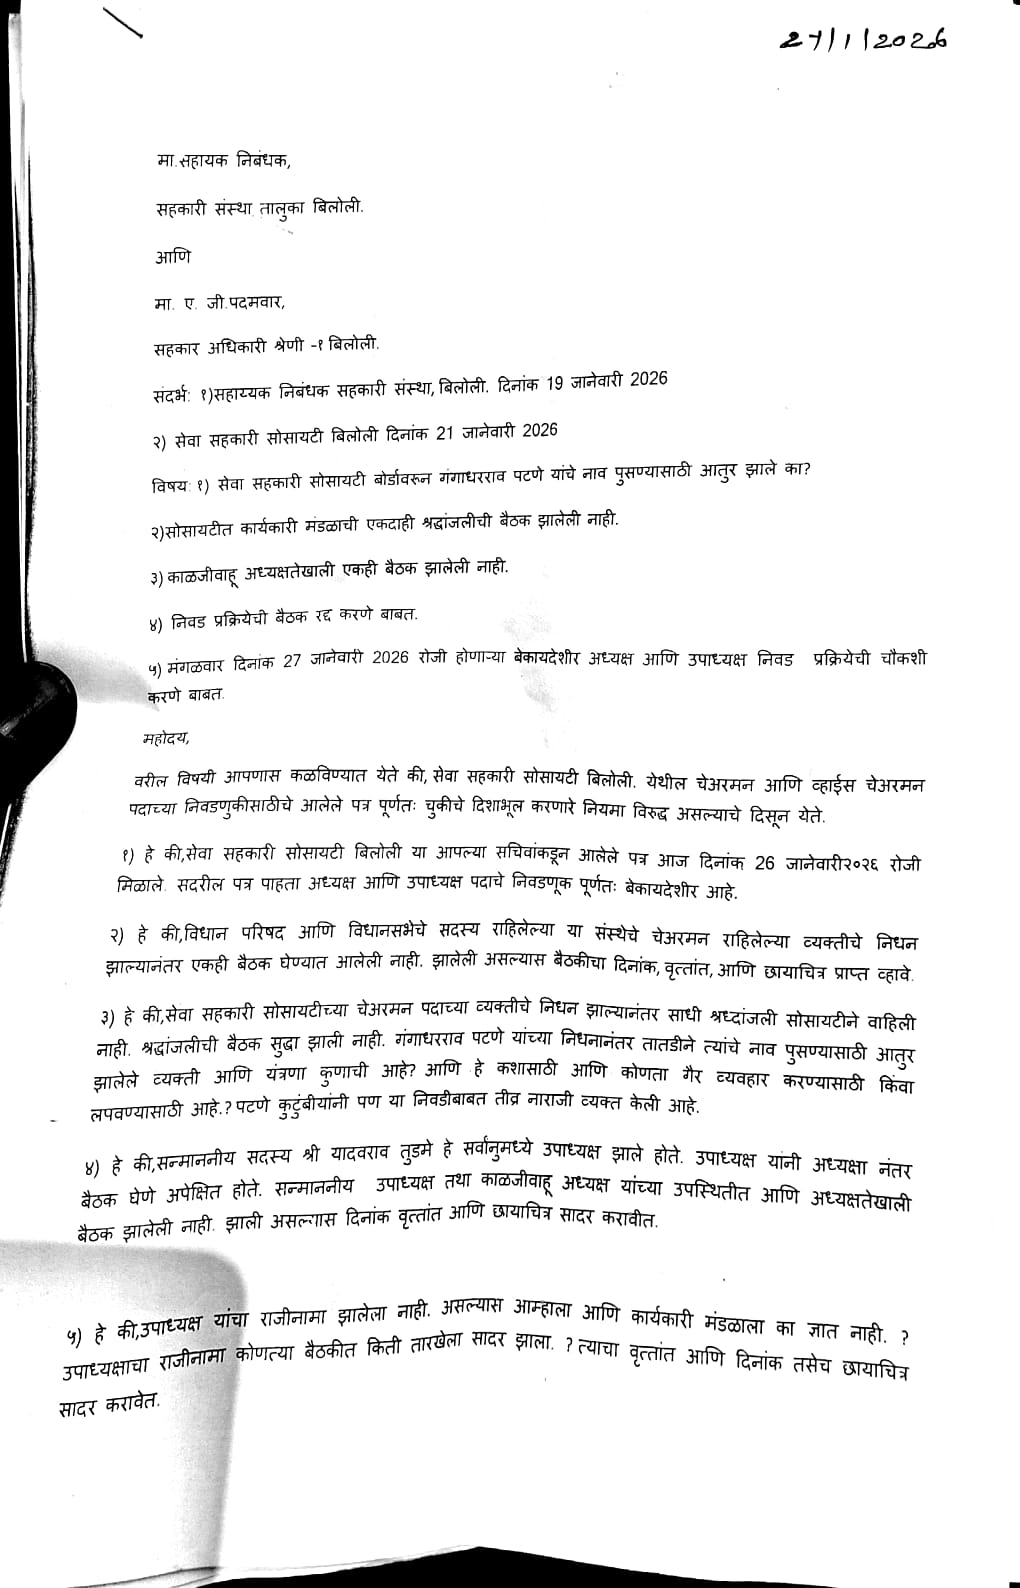 27/1/2026
मा.सहायक निबंधक,
सहकारी संस्था तालुका बिलोली.
आणि
मा. ए. जी.पदमवार,
सहकार अधिकारी श्रेणी -१ बिलोली.
संदर्भ: १)सहाय्यक निबंधक सहकारी संस्था,बिलोली. दिनांक 19 जानेवारी 2026
२) सेवा सहकारी सोसायटी बिलोली दिनांक 21 जानेवारी 2026
विषय: १) सेवा सहकारी सोसायटी बोर्डावरून गंगाधरराव पटणे यांचे नाव पुसण्यासाठी आतुर झाले का?
२)सोसायटीत कार्यकारी मंडळाची एकदाही श्रद्धांजलीची बैठक झालेली नाही.
३) काळजीवाहू अध्यक्षतेखाली एकही बैठक झालेली नाही.
४) निवड प्रक्रियेची बैठक रद्द करणे बाबत.
५) मंगळवार दिनांक 27 जानेवारी 2026 रोजी होणाऱ्या बेकायदेशीर अध्यक्ष आणि उपाध्यक्ष निवड प्रक्रियेची चौकशी
करणे बाबत.
महोदय,
वरील विषयी आपणास कळविण्यात येते की, सेवा सहकारी सोसायटी बिलोली. येथील चेअरमन आणि व्हाईस चेअरमन
पदाच्या निवडणुकीसाठीचे आलेले पत्र पूर्णतः चुकीचे दिशाभूल करणारे नियमा विरुद्ध असल्याचे दिसून येते.
१) हे की,सेवा सहकारी सोसायटी बिलोली या आपल्या सचिवांकडून आलेले पत्र आज दिनांक 26 जानेवारी२०२६ रोजी
मिळाले. सदरील पत्र पाहता अध्यक्ष आणि उपाध्यक्ष पदाचे निवडणूक पूर्णतः बेकायदेशीर आहे.
२) हे की,विधान परिषद आणि विधानसभेचे सदस्य राहिलेल्या या संस्थेचे चेअरमन राहिलेल्या व्यक्तीचे निधन
झाल्यानंतर एकही बैठक घेण्यात आलेली नाही. झालेली असल्यास बैठकीचा दिनांक, वृत्तांत, आणि छायाचित्र प्राप्त व्हावे.
३) हे की,सेवा सहकारी सोसायटीच्या चेअरमन पदाच्या व्यक्तीचे निधन झाल्यानंतर साधी श्रध्दांजली सोसायटीने वाहिली
नाही. श्रद्धांजलीची बैठक सुद्धा झाली नाही. गंगाधरराव पटणे यांच्या निधनानंतर तातडीने त्यांचे नाव पुसण्यासाठी आतुर
झालेले व्यक्ती आणि यंत्रणा कुणाची आहे? आणि हे कशासाठी आणि कोणता गैर व्यवहार करण्यासाठी किंवा
लपवण्यासाठी आहे.? पटणे कुटुंबीयांनी पण या निवडीबाबत तीव्र नाराजी व्यक्त केली आहे.
४) हे की,सन्माननीय सदस्य श्री यादवराव तुडमे हे सर्वानुमध्ये उपाध्यक्ष झाले होते. उपाध्यक्ष यांनी अध्यक्षा नंतर
बैठक घेणे अपेक्षित होते. सन्माननीय उपाध्यक्ष तथा काळजीवाहू अध्यक्ष यांच्या उपस्थितीत आणि अध्यक्षतेखाली
बैठक झालेली नाही. झाली असल्यास दिनांक वृत्तांत आणि छायाचित्र सादर करावीत.
५) हे की,उपाध्यक्ष यांचा राजीनामा झालेला नाही. असल्यास आम्हाला आणि कार्यकारी मंडळाला का ज्ञात नाही. ?
उपाध्यक्षाचा राजीनामा कोणत्या बैठकीत किती तारखेला सादर झाला. ? त्याचा वृत्तांत आणि दिनांक तसेच छायाचित्र
सादर करावेत.